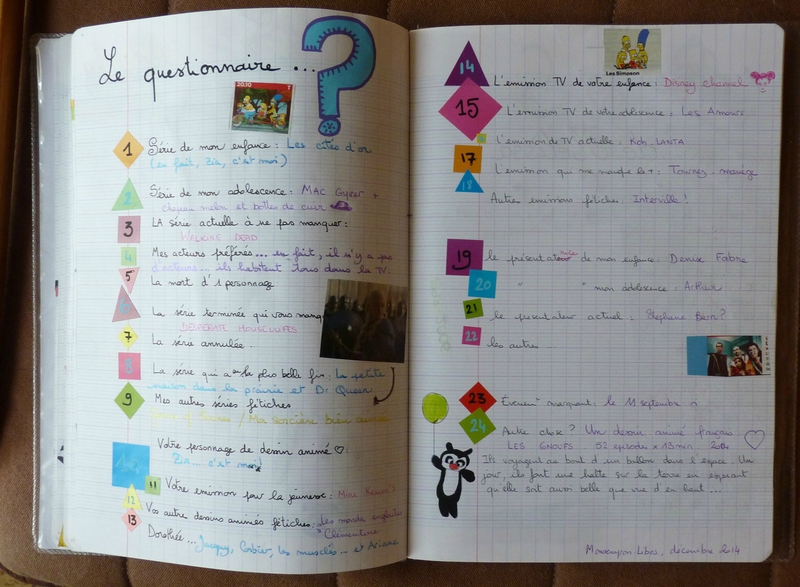 Le questionnaire ...
2010
?
1 Série de mon enfance : Les cités d'or
(en fait, Zia, c'est moi)
2 Série de mon adolescence : MAC Gyver +
chapeau melon et bottes de cuir
3 LA série actuelle à ne pas manquer :
WALKING DEAD
4 Mes acteurs préférés... en fait, il n'y a pas
d'acteurs... ils habitent tous dans la TV.
5 La mort d'1 personnage
6 La série terminée qui vous manque
DESPERATE HOUSEWIFES
7 La série annulée ..
8 La série qui a la plus belle fin : La petite
maison dans la prairie et Dr Queen
9 Mes autres séries fétiches
/ Ma sorcière bien aimée
10 Votre personnage de dessin animé ♡ :
Zia... c'est moi!
11 Votre emission pour la jeunesse : Mini
12
13 Vos autres dessins animés fétiches : Les monde engloutis
+ Clémentine
Dorothée... Jacquy, Corbier, les musclés... et Ariane
Les Simpson
14 L'émission TV de votre enfance : Disney channel
15 L'émission TV de votre adolescence : Les Amours
L'émission de TV actuelle : Koh LANTA
17 L'émission qui me manque le + : Tournez manège
18 Autre emissions fétiches : Interville !
19 le présentatrice de mon enfance : Denise Fabre
20 " " mon adolescence : Arthur
21 le présentateur actuel : Stéphane Bern ?
22 les autres
23 Évènemt marquant : le 11 septembre
24 Autre chose ? Un dessin animé français
LES GNOUFS 52 episode x 13 min
Ils voyagent au bord d'un ballon dans l'espace. Un
jour, ils font une halte sur la terre en espérant
qu'elle soit aussi belle que vue d'en haut ...
décembre 2014